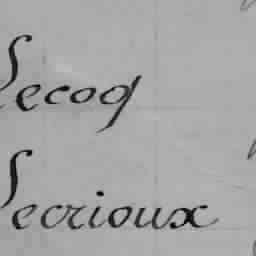 Lecoq
Lecrioux